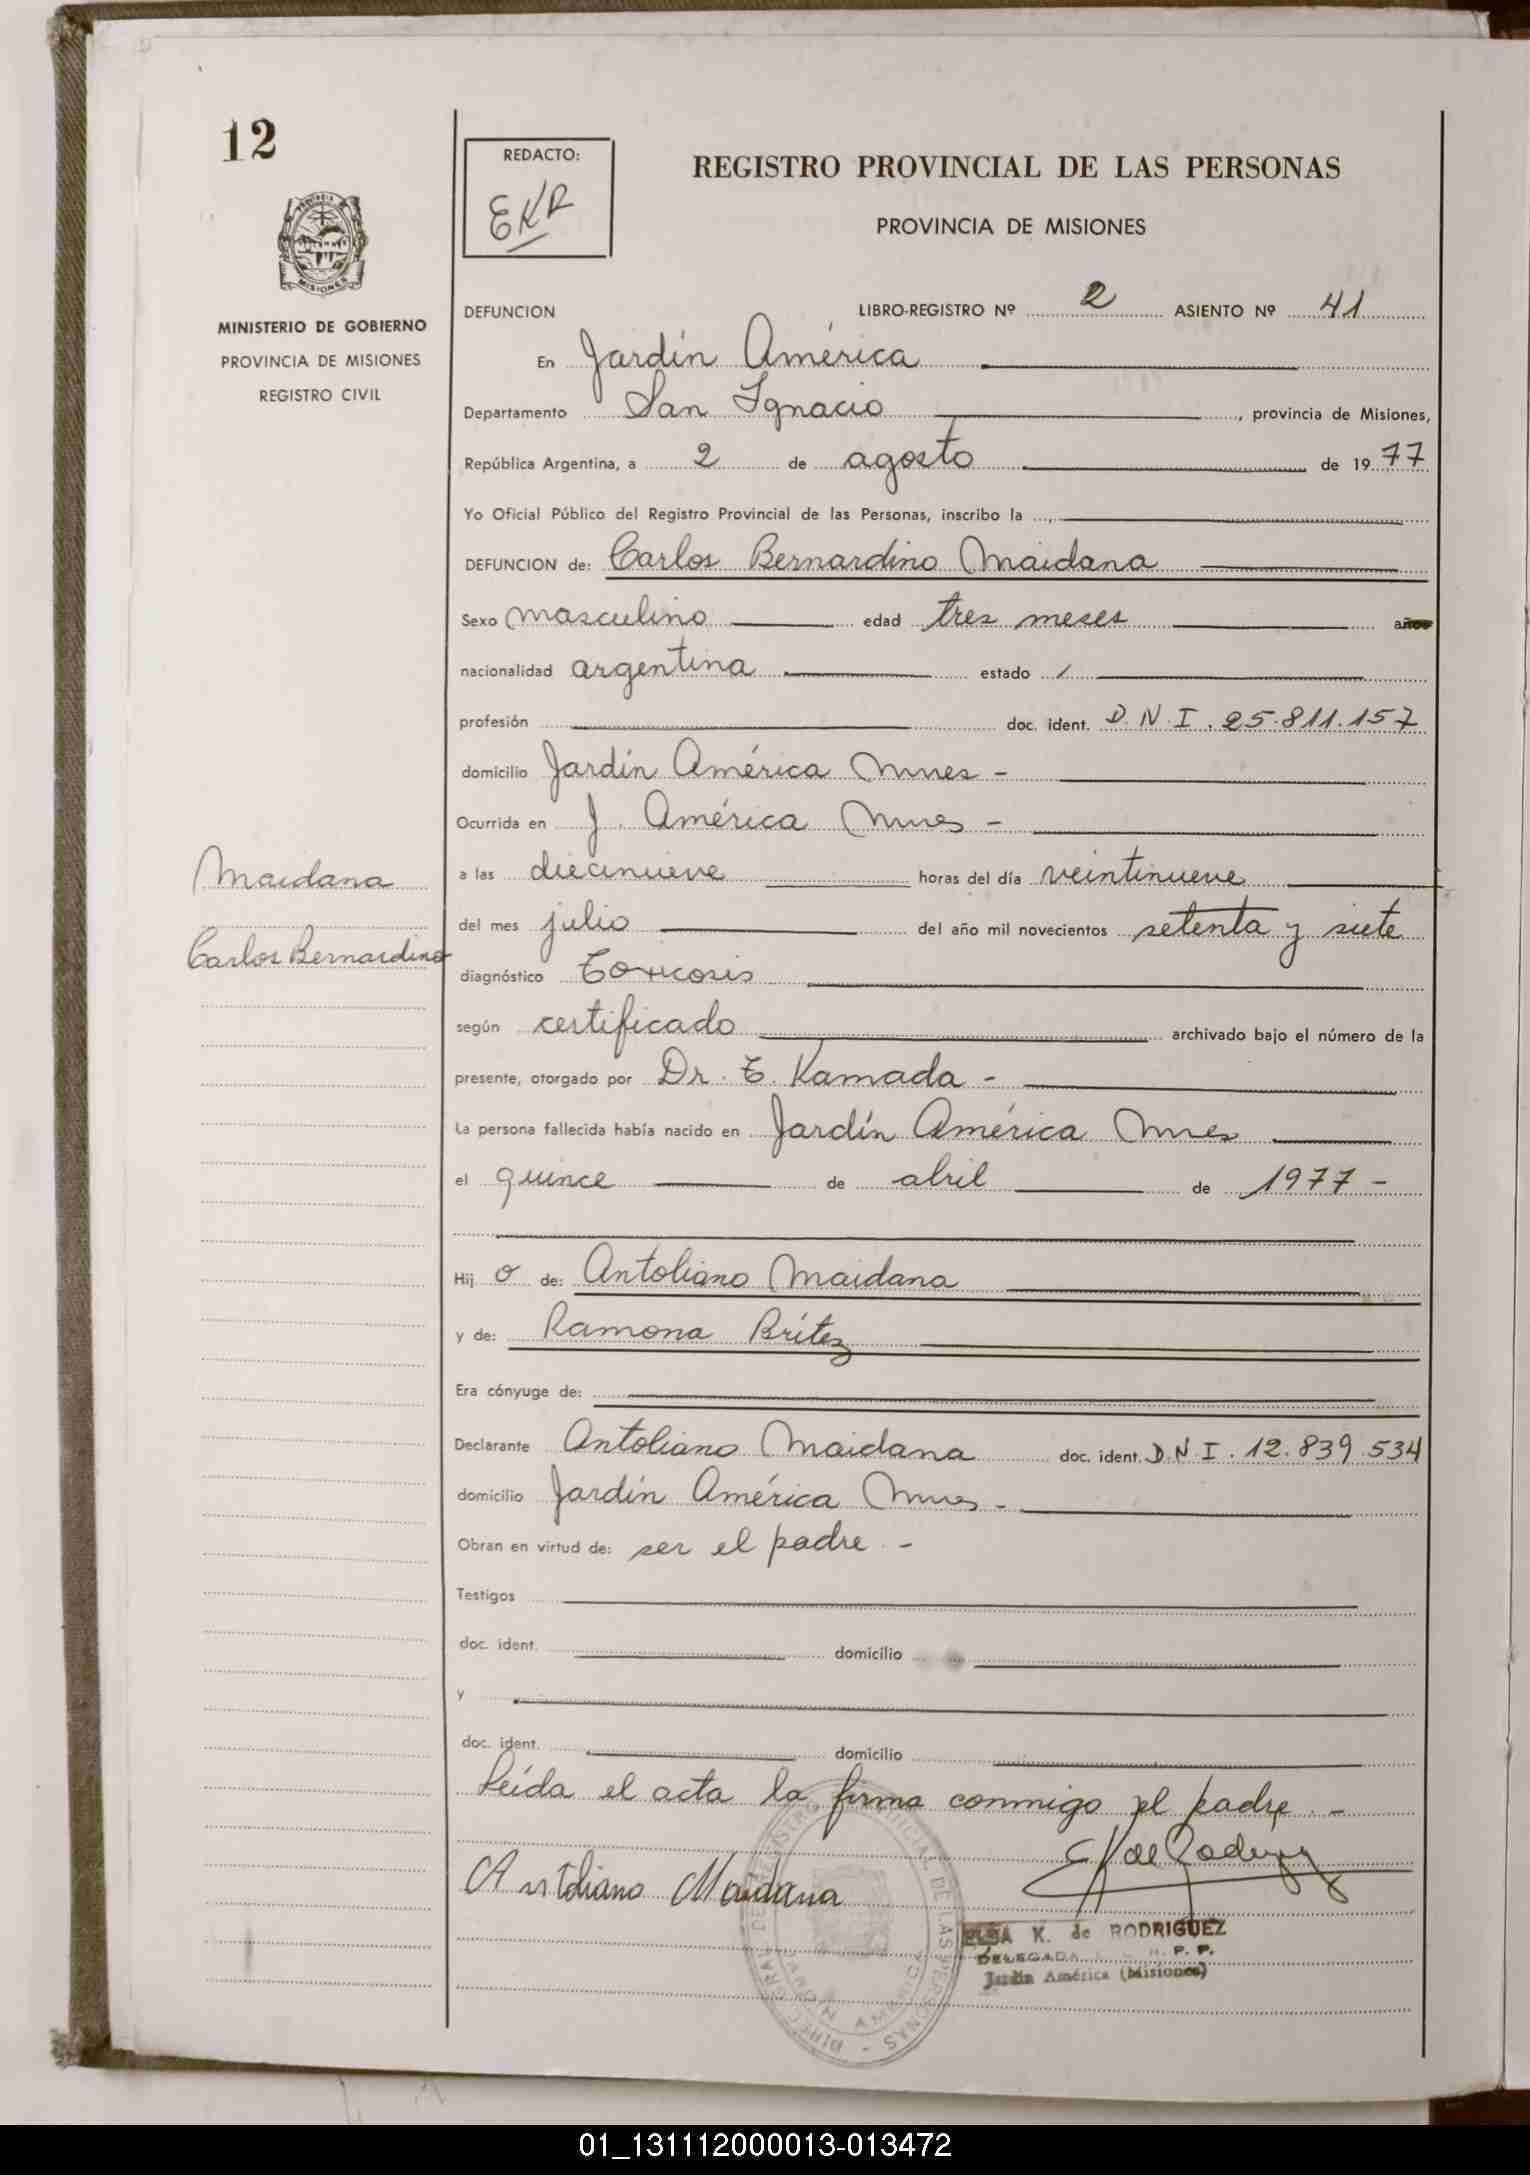 12
REDACTO:
EKR
REGISTRO PROVINCIAL DE LAS PERSONAS
PROVINCIA DE MISIONES
MISIONES
MINISTERIO DE GOBIERNO
PROVINCIA DE MISIONES
REGISTRO CIVIL
DEFUNCION LIBRO-REGISTRO Nº 2 ASIENTO Nº 41
En Jardín América
Departamento San Ignacio, provincia de Misiones,
República Argentina, a 2 de agosto de 1977
Yo Oficial Público del Registro Provincial de las Personas, inscribo la
DEFUNCION de: Carlos Bernardino Maidana
Sexo masculino edad tres meses años
nacionalidad argentina estado /
profesión doc. ident. D.N.I. 25.811.157
domicilio Jardín América Mnes -
Ocurrida en J. América Mnes -
Maidana
Carlos Bernardino
a las diecinueve horas del día veintinueve
del mes julio del año mil novecientos setenta y siete
diagnóstico Toxicosis
según certificado archivado bajo el número de la
presente, otorgado por Dr. T. Kamada -
La persona fallecida había nacido en Jardín América Mnes
el quince de abril de 1977 -
Hij o de: Antoliano Maidana
y de: Ramona Brítez
Era cónyuge de:
Declarante Antoliano Maidana doc. ident. D.N.I. 12.839.534
domicilio Jardín América Mnes -
Obran en virtud de: ser el padre. -
Testigos
doc. ident. domicilio
y
doc. ident. domicilio
Leída el acta la firma conmigo el padre. -
EK de Rodriguez
Antoliano Maidana
ELBA K. de RODRIGUEZ
DELEGADA R. P. P.
Jardín América (Misiones)
01_131112000013-013472